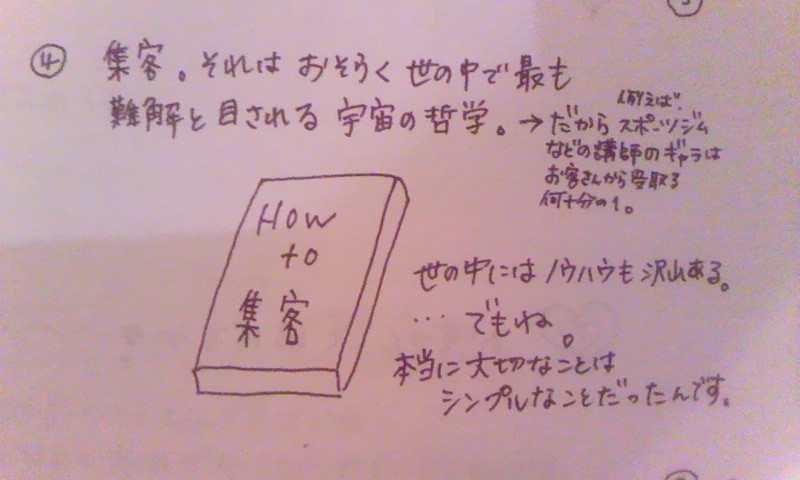 ④ 集客。それは おそらく 世の中で 最も
難解と目される 宇宙の哲学。→だから
例えば、
スポーツジム
などの講師のギャラは
お客さんから受取る
何十分の1。
How
to
集客
世の中には ノウハウも 沢山ある。
… でもね。
本当に大切なことは
シンプルなことだったんです。